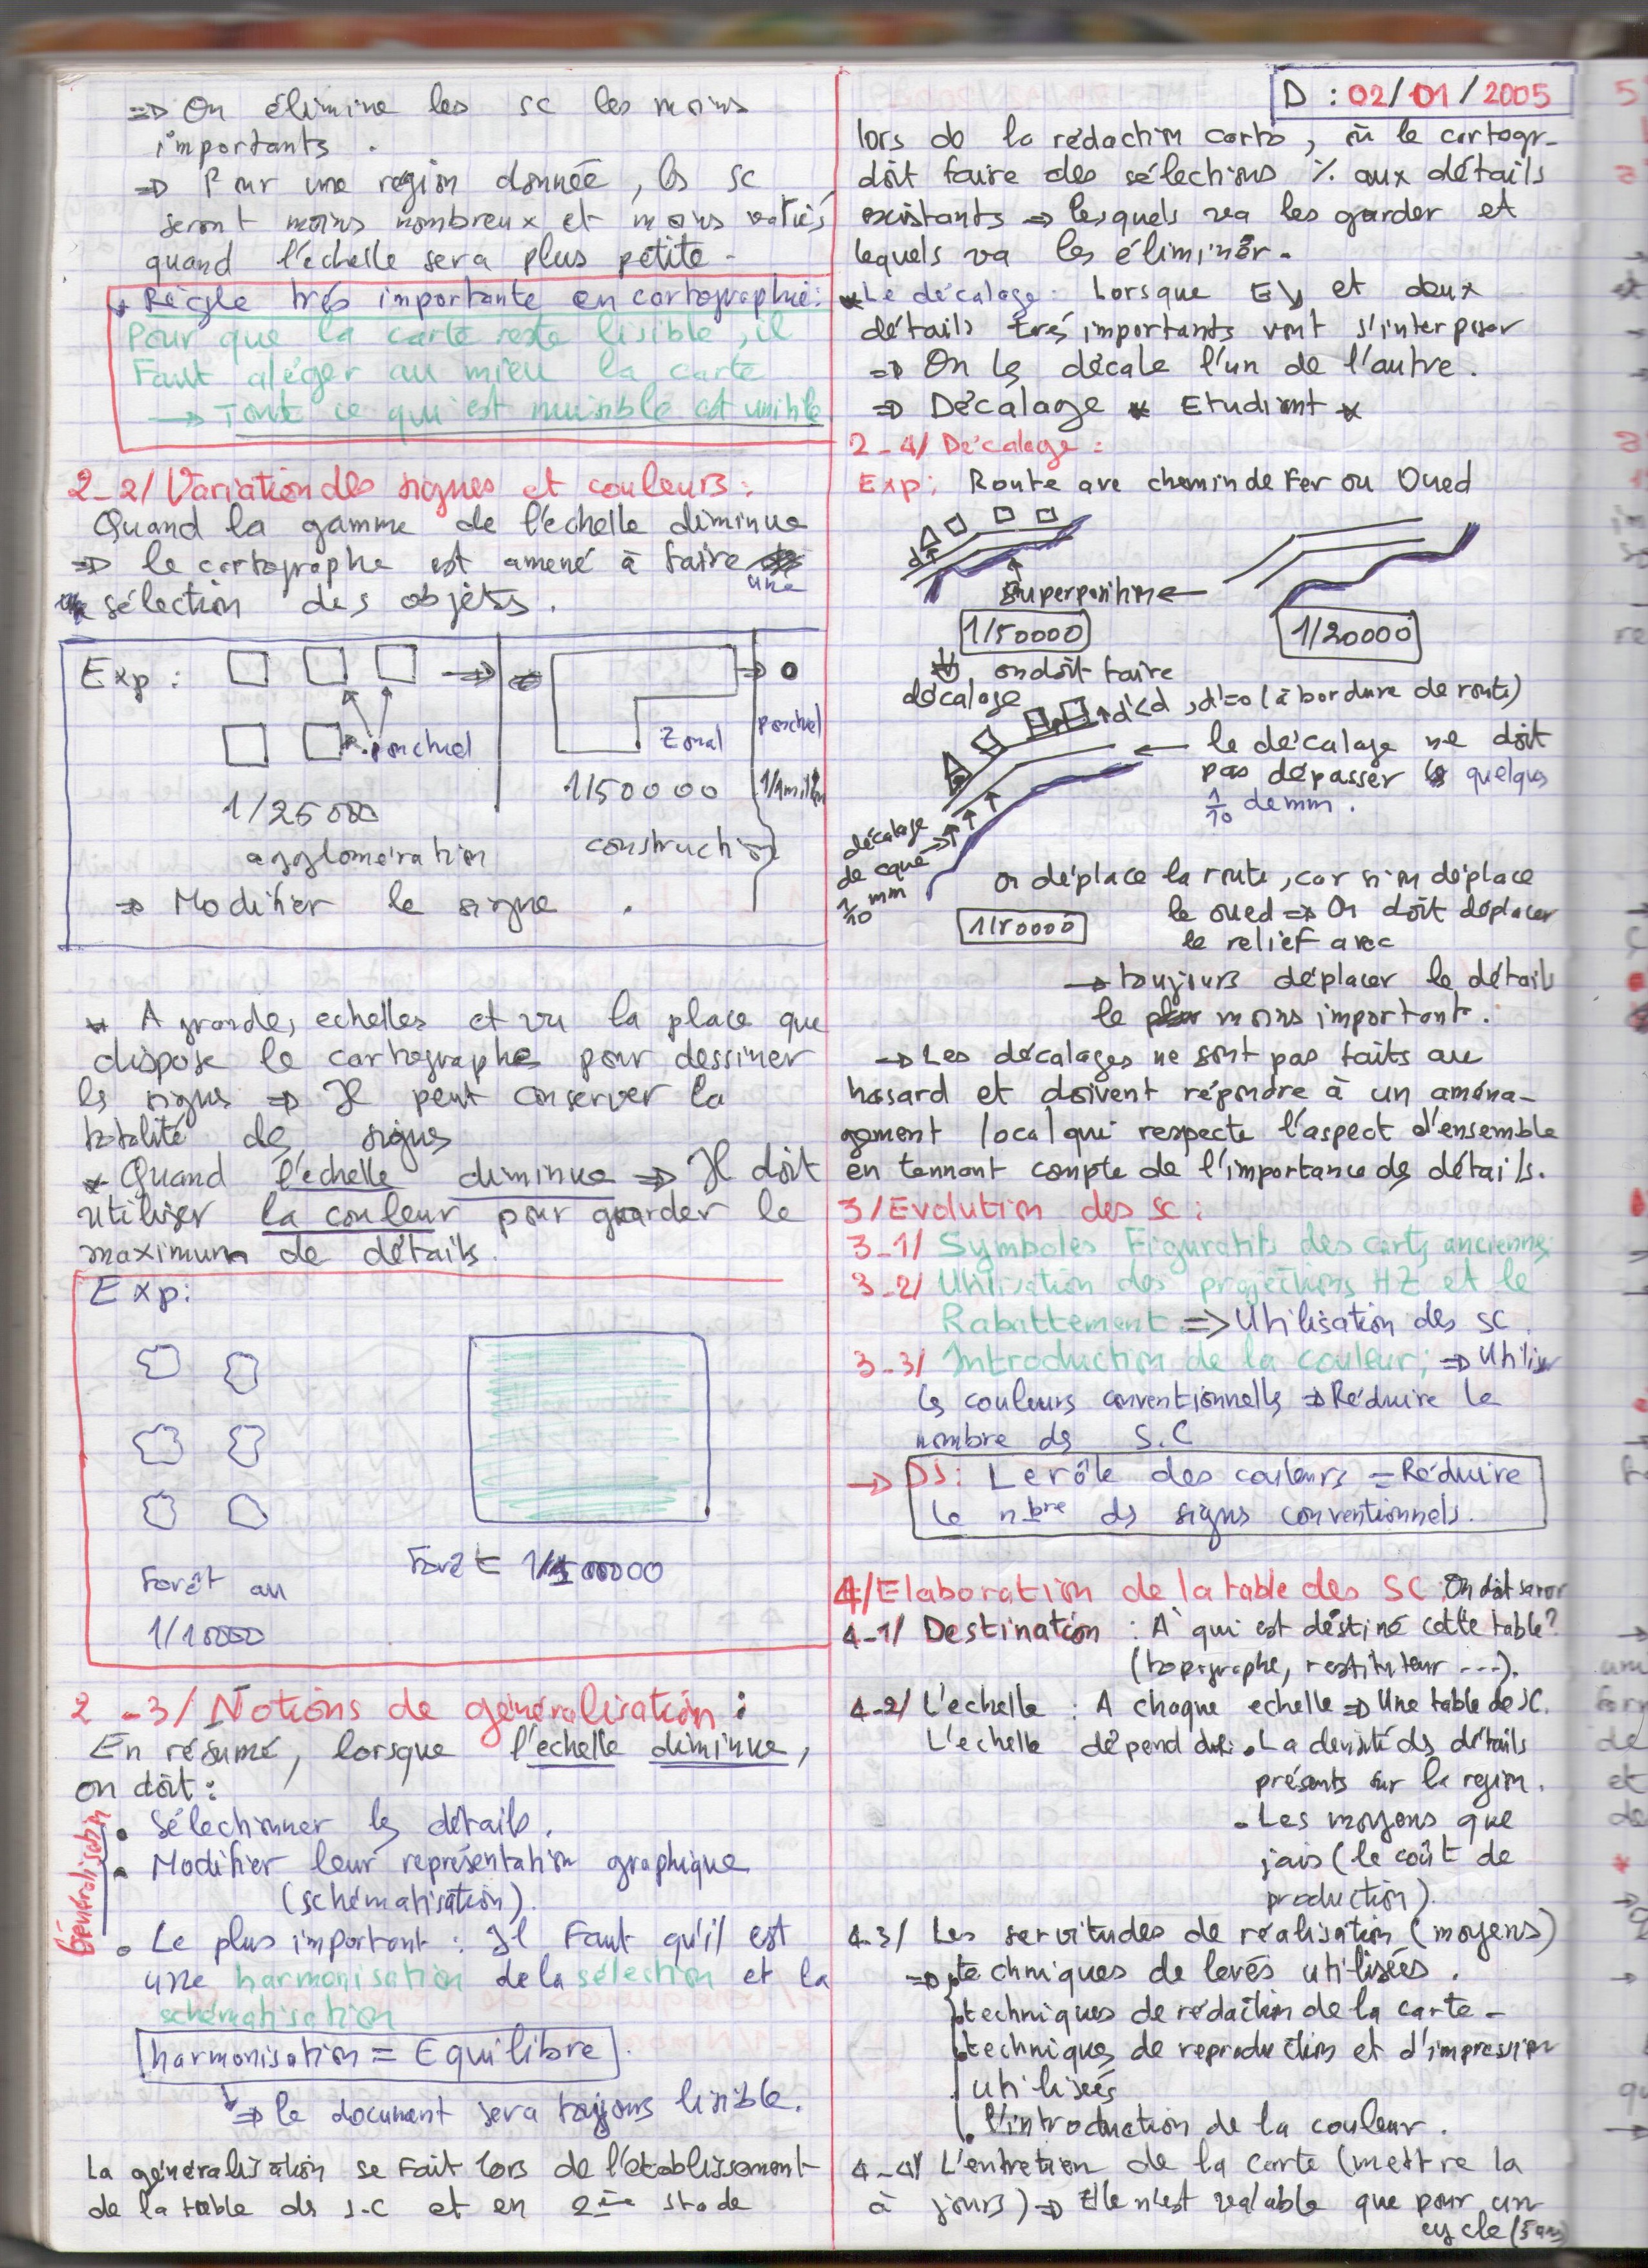 => On élimine les sc les moins
importants .
=> Pour une region donnée, les sc
seront moins nombreux et moins variés
quand l'échelle sera plus petite -
Règle trés importante en cartographie:
Pour que la carte reste lisible, il
Faut aléger au mieu la carte
→ Toute ce qui est nuisible
2_2/ Variation des signes et couleurs:
Quand la gamme de l'échelle diminue
=> le cartographe est amené à faire
une
sélection des objets.
Exp :
ponctuel
Zonal
ponctuel
1/25000
1/50000
1/1million
agglomération
construction
=> Modifier le signe .
* A grandes echelles et vu la place que
dispose le cartographe pour dessiner
les signes => Il peut conserver la
totalité des signes
* Quand l'échelle diminue => Il doit
utiliser la couleur pour garder le
maximum de détails.
Exp:
Forêt au
1/10000
Forêt 1/100000
2_3/ Notions de généralisation :
En résumé, lorsque l'échelle diminue,
on doit:
Généralisation
• Sélectionner les détails.
• Modifier leur représentation graphique
(schématisation).
• Le plus important : Il Faut qu'il est
une harmonisation de la sélection et la
schématisation
harmonisation = Equilibre .
=> le document sera toujours lisible.
La généralisation se Fait lors de l'établissement
de la table des s.c et en 2ème stade
D : 02/01/2005
lors de la rédaction carto, où le cartogr-
doit faire des sélections % aux détails
existants => lesquels va les garder et
lequels va les éliminér-
* Le décalage: Lorsque E↘ et deux
détails trés importants vont s'interposer
=> On les décale l'un de l'autre.
=> Décalage * Etudiant *
2_4/ Décalage :
Exp: Route ave chemin de Fer ou Oued
d
Superposition ←
1/50000
1/20000
on doit faire
décalage
d'<d, d'=0 (à bordure de route)
← le décalage ne doit
pas dépasser quelques
1/10 de mm.
décalage
de cque
1/10 mm
1/50000
on déplace la route, car si on déplace
le oued => On doit déplacer
le relief avec
→ toujours déplacer le détail
le moins important.
→ Les décalages ne sont pas faits au
hasard et doivent répondre à un aména-
gement local qui respecte l'aspect d'ensemble
en tennant compte de l'importance des détails.
3/ Evolution des sc :
3_1/ Symboles Figuratifs des cartes anciennes
3_2/ Utilisation des projections HZ et le
Rabattement => Utilisation des sc.
3_3/ Introduction de la couleur; => Utiliser
les couleurs conventionnelles => Réduire le
nombre des S.C
→ DS: Le rôle des couleurs = Réduire
le nbre des signes conventionnels.
4/ Elaboration de la table des SC: On doit savoir
4_1/ Destination : A qui est déstiné cette table?
(topographe, restituteur ...).
4_2/ L'echelle : A chaque echelle => Une table de SC.
L'échelle dépend de: • La densité des détails
présents sur la region.
• Les moyens que
j'ais (le coût de
production).
4_3/ Les servitudes de réalisation (moyens)
=> techniques de levés utilisées.
techniques de redaction de la carte -
techniques de reproduction et d'impression
utilisées
• l'introduction de la couleur.
4_4/ L'entretien de la carte (mettre la
à jours) => Elle n'est valable que pour un
cycle (5 ans)